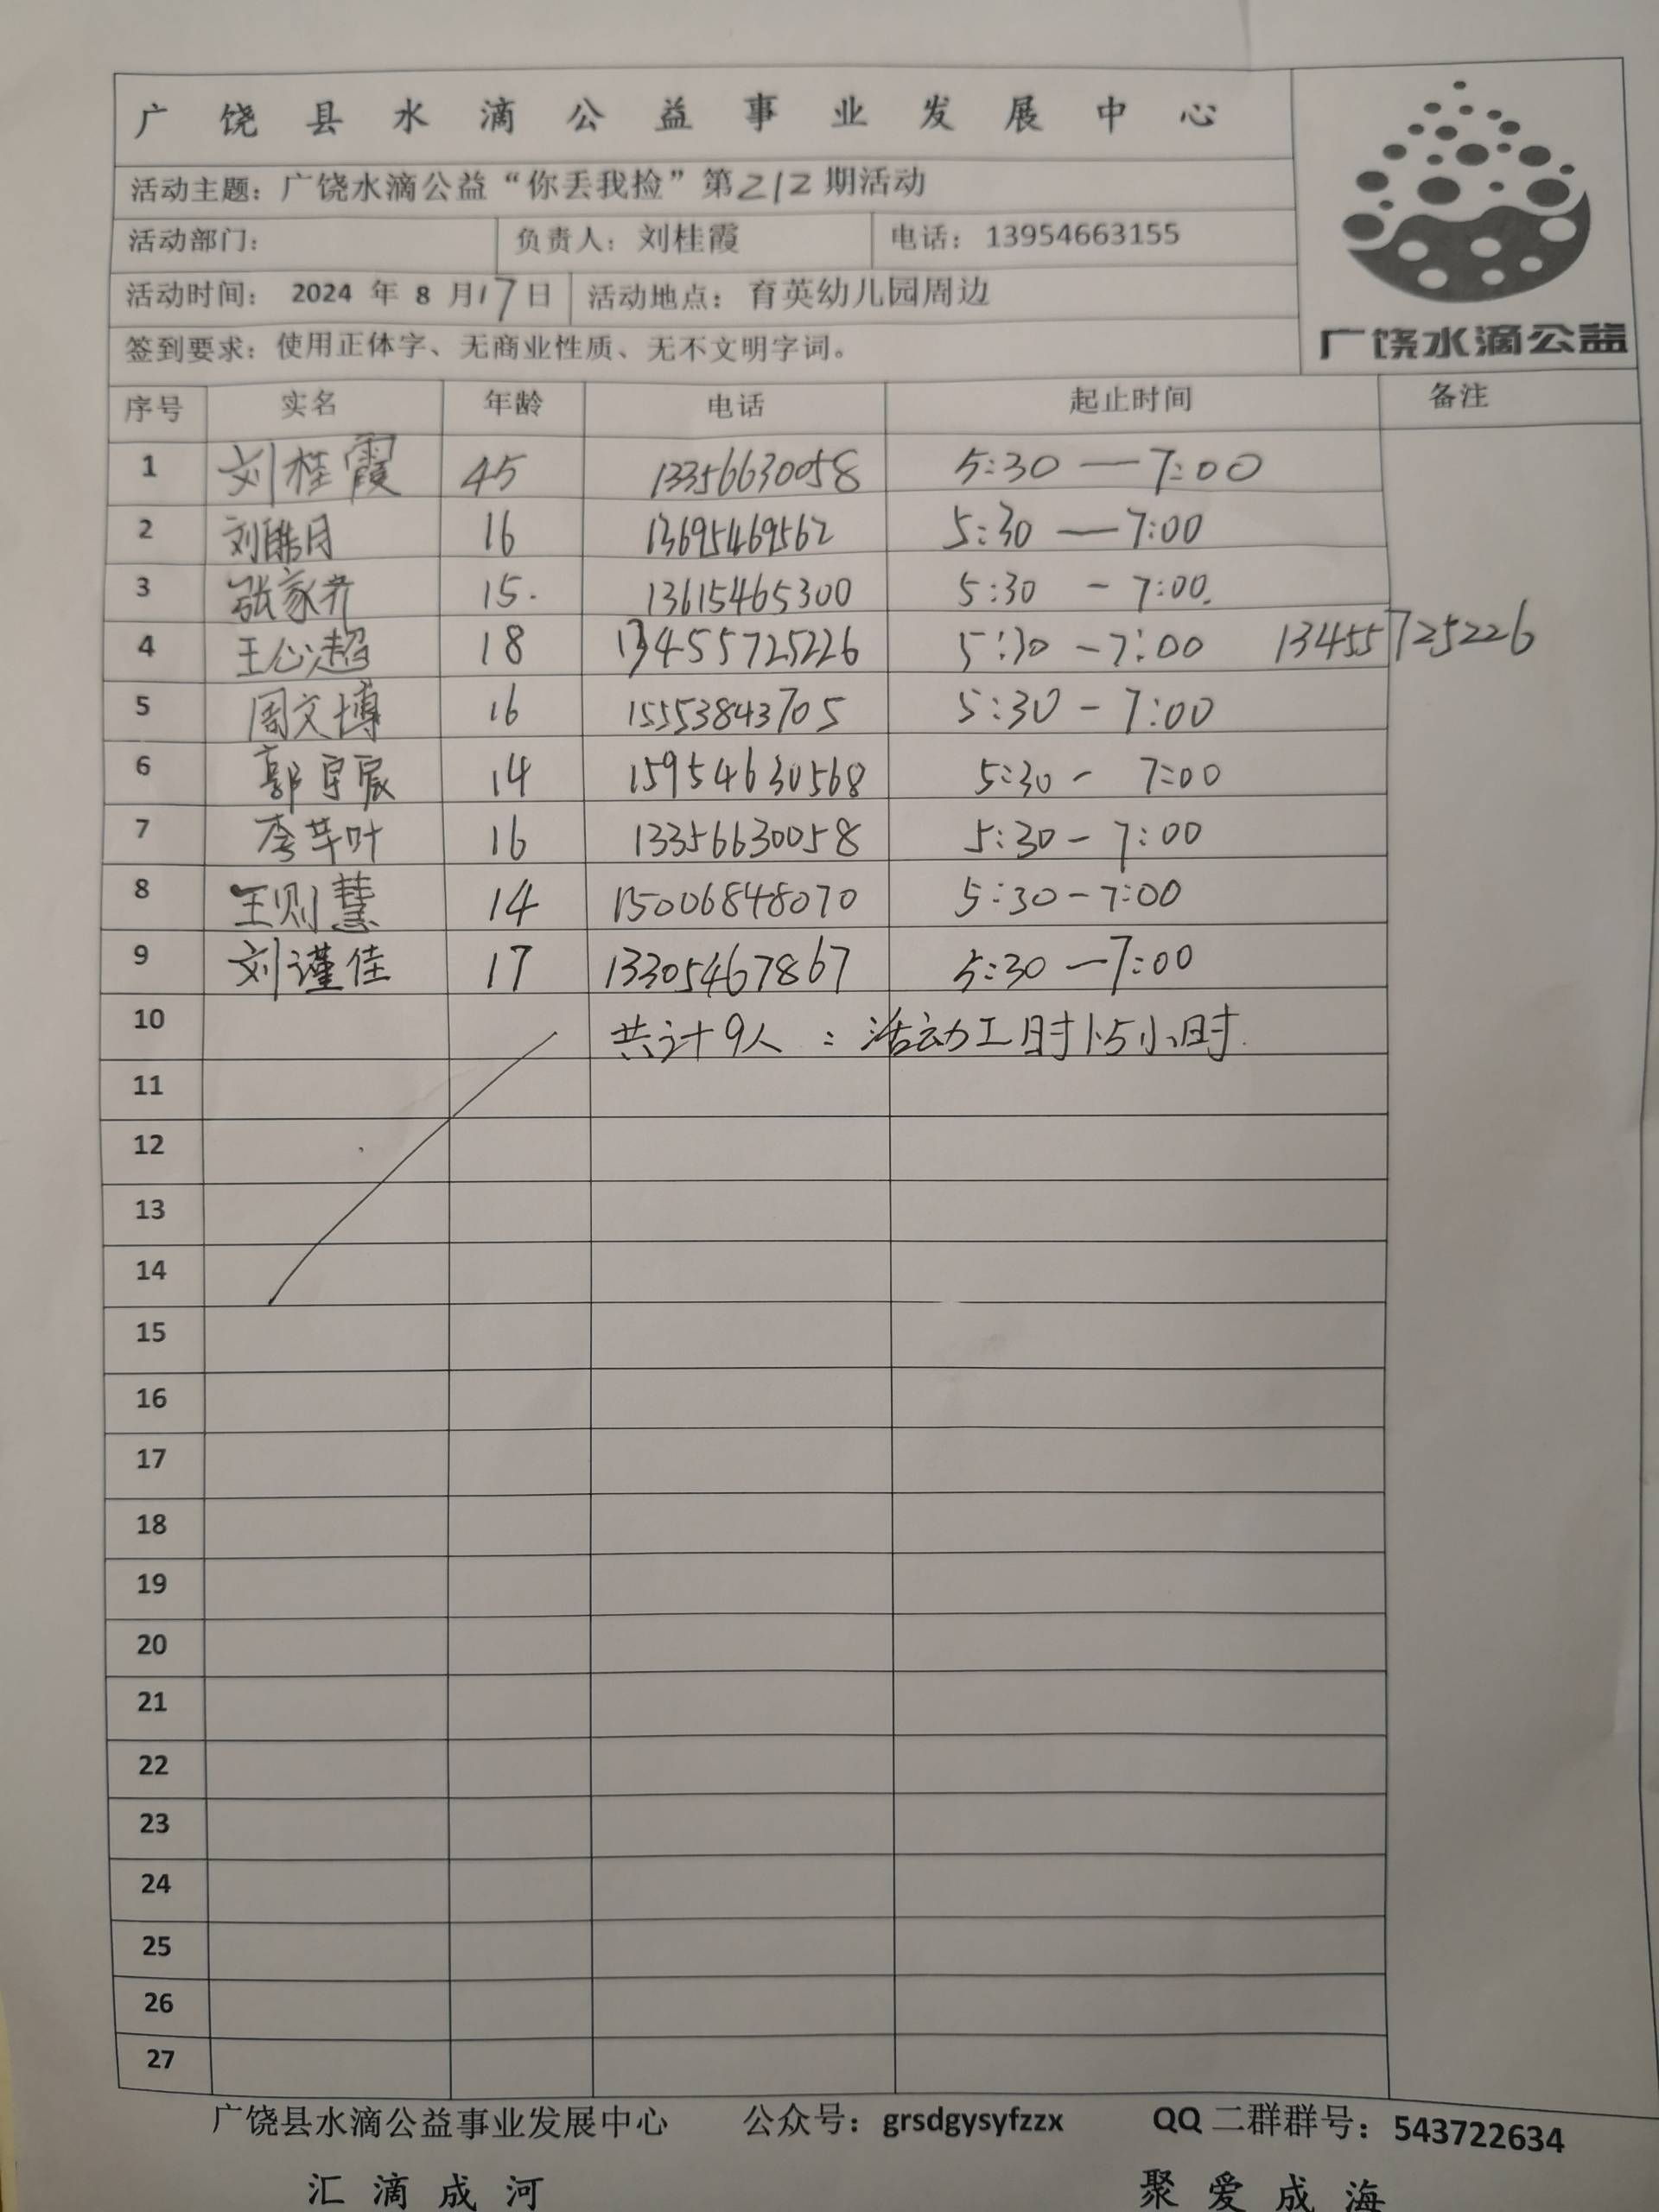 广饶县水滴公益事业发展中心
活动主题：广饶水滴公益“你丢我捡”第212期活动
活动部门： 负责人：刘桂霞 电话：13954663155
活动时间： 2024 年 8 月17日 活动地点：育英幼儿园周边
签到要求：使用正体字、无商业性质、无不文明字词。
广饶水滴公益
序号 实名 年龄 电话 起止时间 备注
1 刘桂霞 45 13356630058 5:30 — 7:00
2 刘皓月 16 13695469562 5:30 — 7:00
3 张家齐 15. 13615465300 5:30 - 7:00.
4 王心超 18 13455725226 5:30 - 7:00 13455725226
5 周文博 16 15553843705 5:30 - 7:00
6 郭宇宸 14 15954630568 5:30 - 7:00
7 李芊叶 16 13356630058 5:30 - 7:00
8 王则慧 14 15006848070 5:30 - 7:00
9 刘谨佳 17 13305467867 5:30 — 7:00
10 共计9人：活动工时1.5小时.
11
12
13
14
15
16
17
18
19
20
21
22
23
24
25
26
27
广饶县水滴公益事业发展中心 公众号：grsdgysyfzzx QQ 二群群号：543722634
汇滴成河 聚爱成海